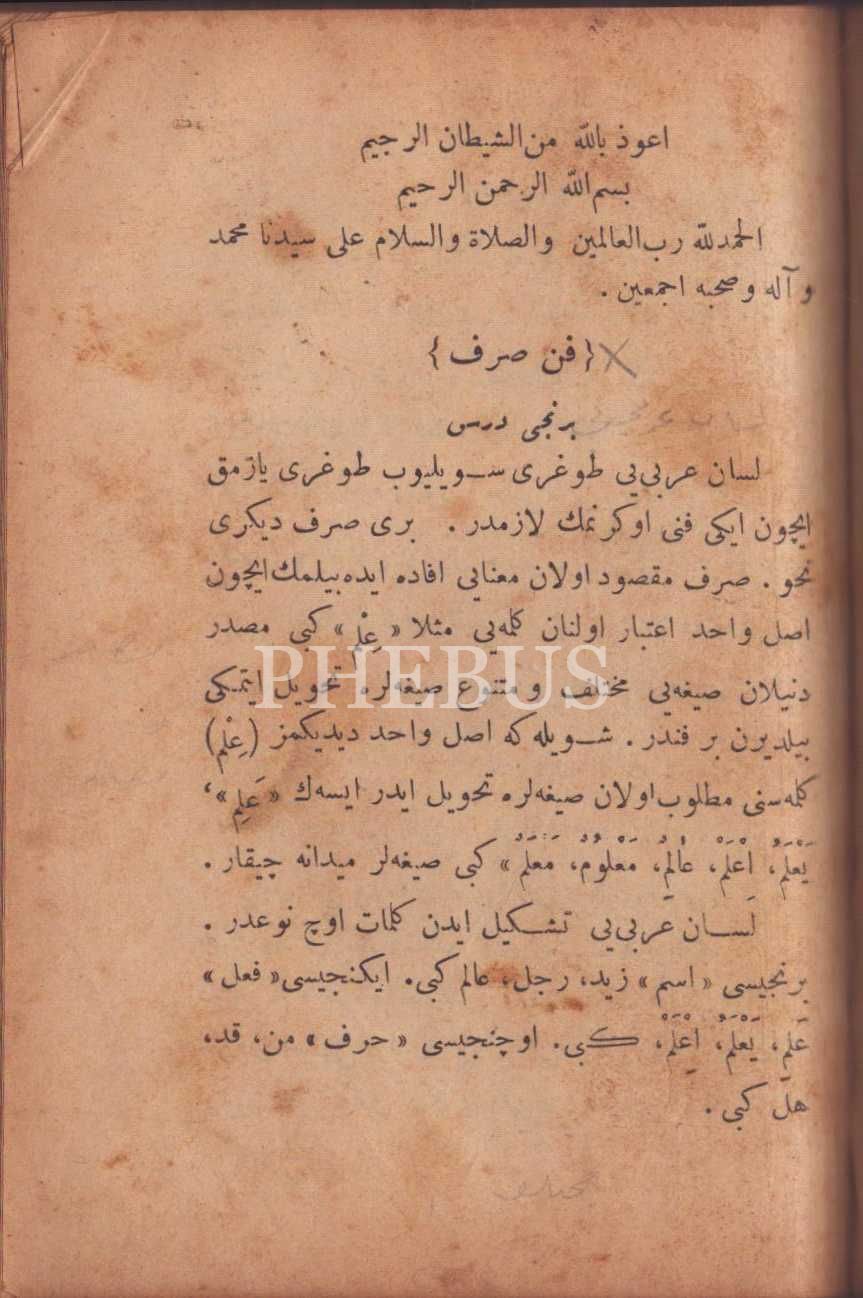 اعوذ بالله من الشيطان الرجيم
بسم الله الرحمن الرحيم
الحمدلله رب العالمين والصلاة والسلام على سيدنا محمد
و آله و صحبه اجمعين .
{ فن صرف }
برنجی درس
لسان عربی‌يی طوغری سويليوب طوغری يازمق
ايچون ايكی فنی اوكرنمك لازمدر . بری صرف ديكری
نحو . صرف مقصود اولان معنايی افاده ايده بيلمك ايچون
اصل واحد اعتبار اولنان كلمه‌يی مثلا « عِلْم » كبی مصدر
دنيلان صيغه‌يی مختلف و متنوع صيغه‌لره تحويل ايتمكی
PHEBUS
بيلديرن بر فندر . شويله كه اصل واحد ديديكمز (عِلْم)
كلمه‌سنی مطلوب اولان صيغه‌لره تحويل ايدر ايسه‌ك « عَلِمَ »،
يَعْلَمُ، اِعْلَمْ، عالِمٌ، مَعْلُومٌ، مَعْلَمٌ » كبی صيغه‌لر ميدانه چيقار .
لسان عربی‌يی تشكيل ايدن كلمات اوچ نوعدر .
برنجيسی « اسم » زيد، رجل، عالم كبی. ايكنجيسی « فعل »
عَلِمَ، يَعْلَمُ، اِعْلَمْ، كبی. اوچنجيسی « حرف » من، قد،
هل كبی .